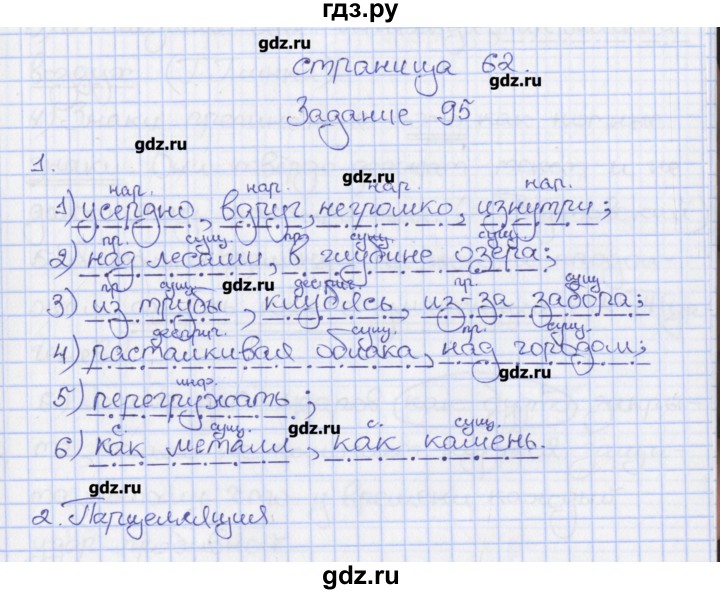 гдз.ру
gdz.ru
страница 62.
gdz.ru
Задание 95
gdz.ru
1.
gdz.ru
нар. нар. нар. нар.
1) усердно, вдруг, негромко, изнутри;
пр. сущ. пр. сущ. сущ.
2) над лесами, в глубине озера;
пр. сущ. дееприч. пр. сущ.
3) из трубы, клубясь, из-за забора;
gdz.ru gdz.ru
дееприч. сущ. пр. сущ.
4) расталкивая облака, над городом;
gdz.ru
инф.
5) перегружать;
с. сущ. с. сущ.
gdz.ru
6) как металл, как камень.
gdz.ru
2. Парцелляция
gdz.ru